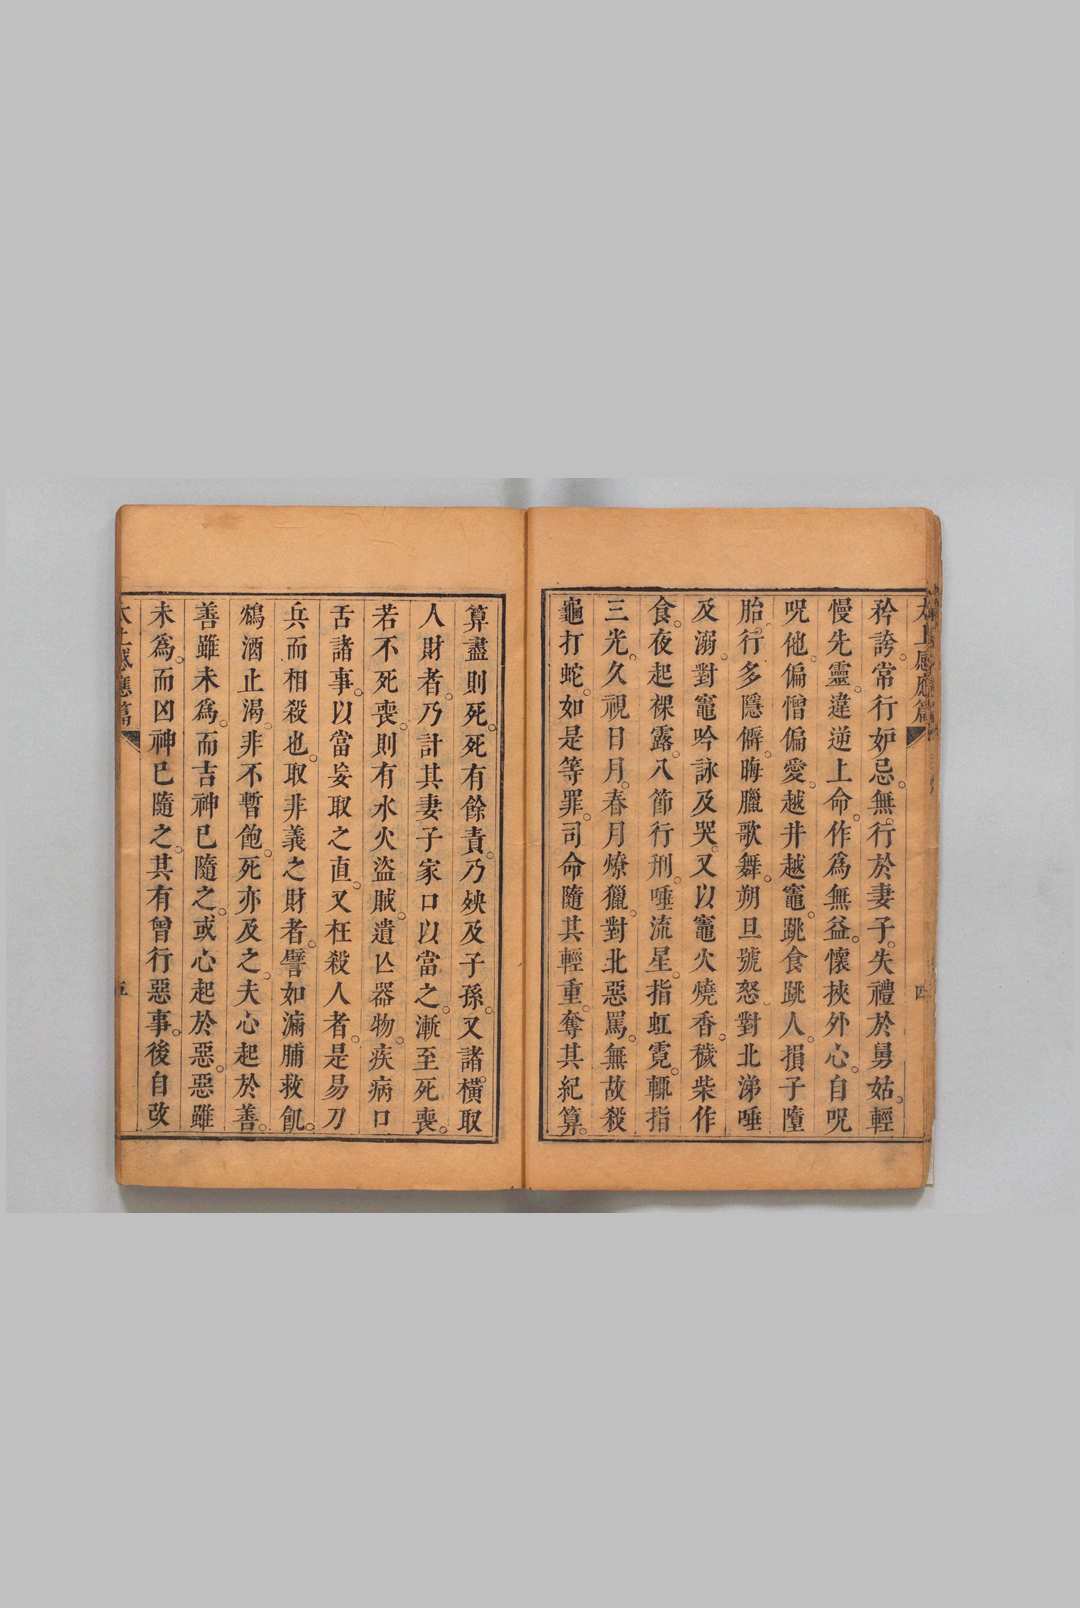 太上感應篇
矜誇。常行妒忌。無行於妻子。失禮於舅姑。輕
慢先靈。違逆上命。作爲無益。懷挾外心。自呪
呪他。偏憎偏愛。越井越竈。跳食跳人。損子墮
胎。行多隱僻。晦臘歌舞。朔旦號怒。對北涕唾
及溺。對竈吟詠及哭。又以竈火燒香。穢柴作
食。夜起裸露。八節行刑。唾流星。指虹霓。輒指
三光。久視日月。春月燎獵。對北惡罵。無故殺
龜打蛇。如是等罪。司命隨其輕重。奪其紀算。
算盡則死。死有餘責。乃殃及子孫。又諸橫取
人財者。乃計其妻子家口以當之。漸至死喪。
若不死喪。則有水火盜賊。遺亾器物。疾病口
舌諸事。以當妄取之直。又枉殺人者。是易刀
兵而相殺也。取非義之財者。譬如漏脯救飢。
鴆酒止渴。非不暫飽。死亦及之。夫心起於善。
善雖未爲。而吉神已隨之。或心起於惡。惡雖
未爲。而凶神已隨之。其有曾行惡事。後自改
太上感應篇
五